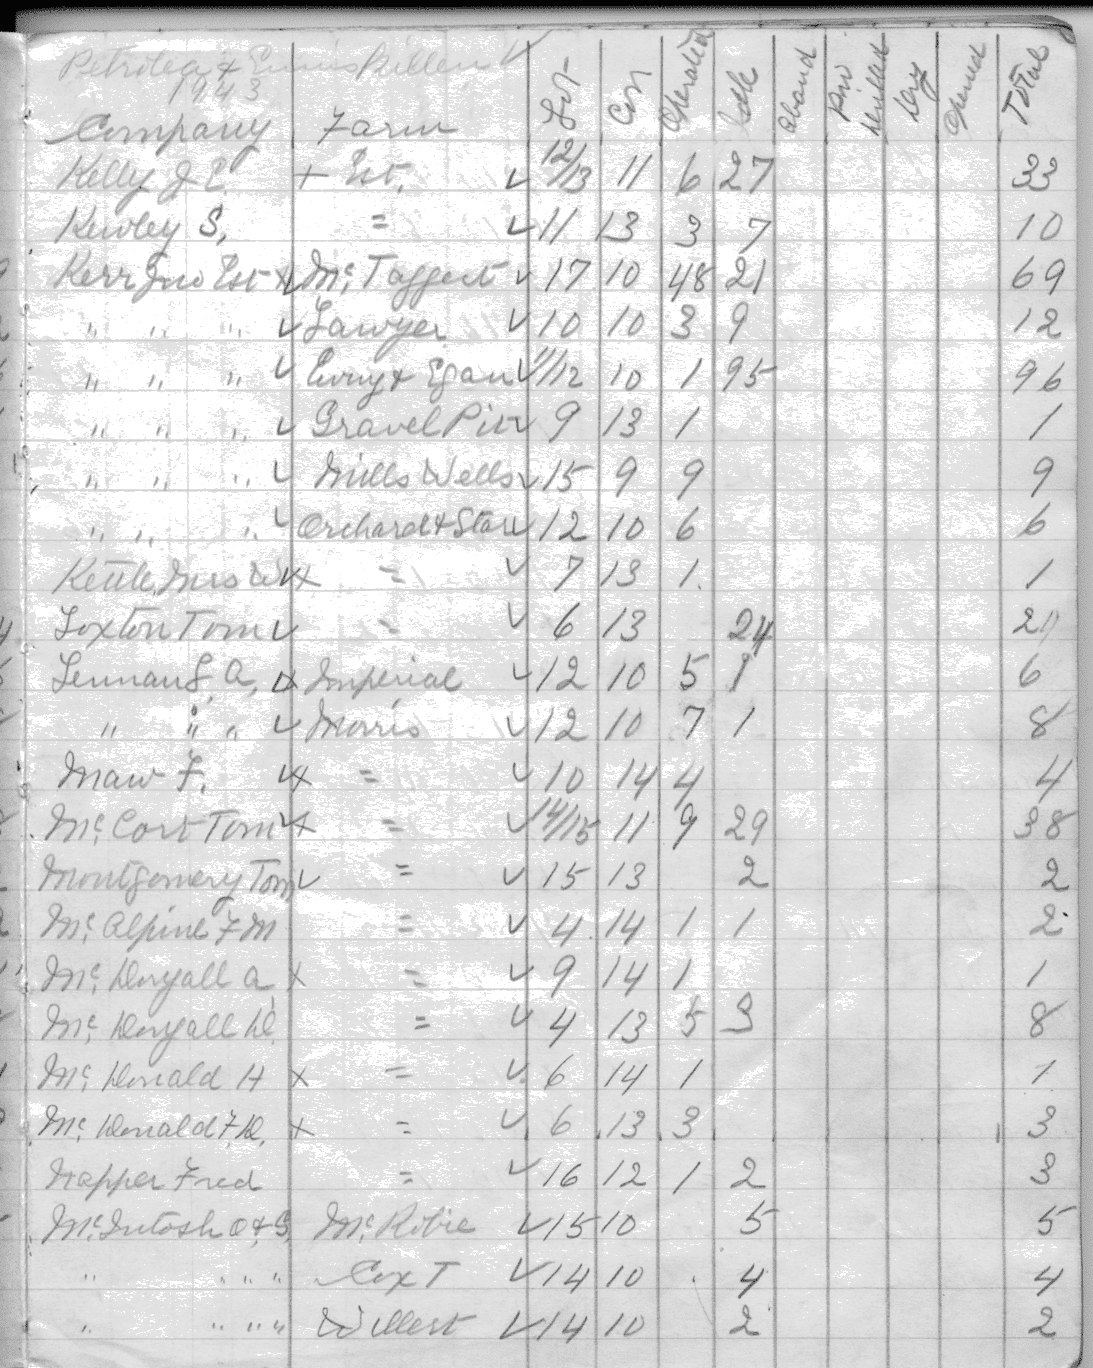 Petrolea & Enniskillen ✓
1943
Company Farm Lot Con Operated Idle Aband New Drilled Dry Opened Total
Kelly J.E. + Est. ✓ 12/13 11 6 27 33
Kewley S. = ✓ 11 13 3 7 10
Kerr Jno Est x✓ Mc Taggert ✓ 17 10 48 21 69
" " " ✓ Sawyer ✓ 10 10 3 9 12
" " " ✓ & Egan ✓ 11/12 10 1 95 96
" " " ✓ Gravel Pit ✓ 9 13 1 1
" " " ✓ Mills Wells ✓ 15 9 9 9
" " " ✓ Orchard & Star ✓ 12 10 6 6
Kettle, Mrs W ✓x = ✓ 7 13 1. 1
Loxton Tom ✓ = ✓ 6 13 24 24
✓x Imperial ✓ 12 10 5 1 6
" " " ✓ Morris ✓ 12 10 7 1 8
Maw F. ✓x = ✓ 10 14 4 4
Mc Cort Tom ✓x = ✓ 14/15 11 9 29 38
Montgomery Tom ✓ = ✓ 15 13 2 2
Mc Alpine F M = ✓ 4 14 1 1 2
Mc Dougall A x = ✓ 9 14 1 1
Mc Dougall D. = ✓ 4 13 5 3 8
Mc Donald H x = ✓ 6 14 1 1
Mc Donald F.D. x = ✓ 6 13 3 3
Napper Fred = ✓ 16 12 1 2 3
McIntosh O & G Mc Robie ✓ 15 10 5 5
" " " " Cox T ✓ 14 10 4 4
" " " " Willert ✓ 14 10 2 2